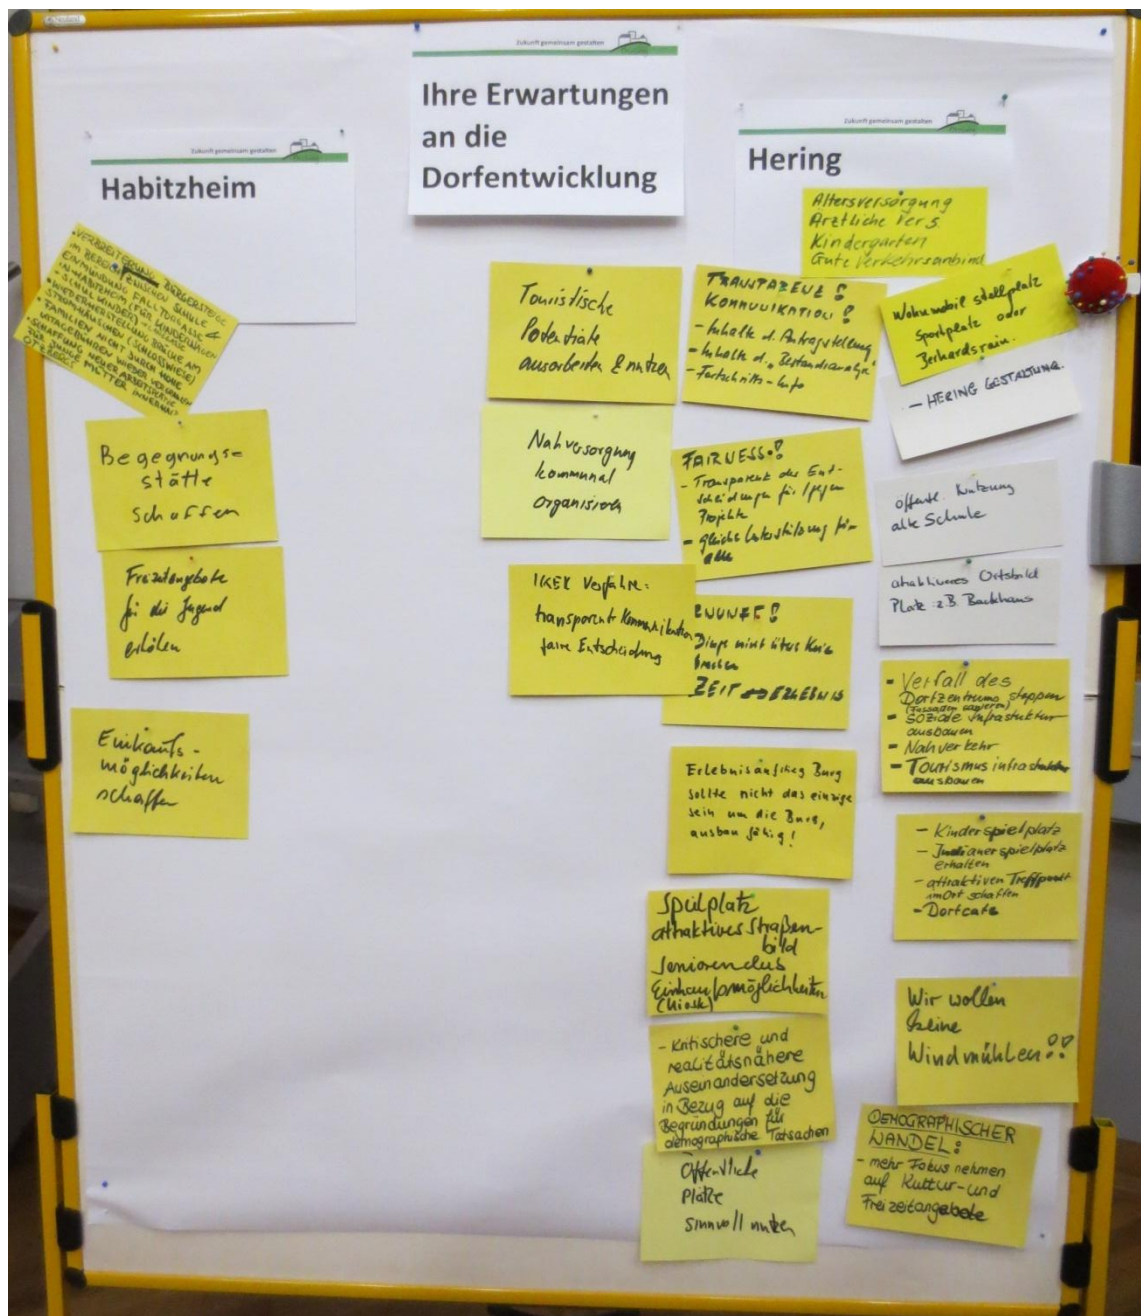 Zukunft gemeinsam gestalten
Ihre Erwartungen
an die
Dorfentwicklung
Zukunft gemeinsam gestalten
Habitzheim
• VERBREITERUNG BÜRGERSTEIGE
IM BEREICH ZWISCHEN SCHULE &
EINMÜNDUNG FALLTORGASSE
IN HABITZHEIM (FÜR KINDERWAGEN
SCHULKINDER)
• WIEDERHERSTELLUNG BÄCHE AM
STROMHÄUSCHEN (SCHLOSSWIESE)
• FAMILIEN NICHT DURCH HOHE
KITAGEBÜHREN WIEDER VERGRAULEN
• SCHAFFUNG NEUER ARBEITSPLÄTZE
FÜR JUNGE MÜTTER INNERHALB
OTZBERGS
Begegnungs=
stätte
schaffen
Freizeitangebote
für die Jugend
erhöhen
Einkaufs-
möglichkeiten
schaffen
Touristische
Potentiale
ausarbeiten & nutzen
Nahversorgung
kommunal
organisieren
IKEK Verfahre:
transparente Kommunikation
faire Entscheidung
Zukunft gemeinsam gestalten
Hering
Altersversorgung
Ärztliche Vers.
Kindergarten
Gute Verkehrsanbind
TRANSPARENZ!
KOMMUNIKATION!
- Inhalte d. Antragstellung
- Inhalte d. "Bestandsanalyse"
- Fortschritts-Info
FAIRNESS!
- Transparent der Ent-
scheidungen für/gegen
Projekte
- gleiche Unterstützung für
alle
RNUNFT!
Dinge nicht übers Knie
brechen
ZEIT ERLEBNIS
Erlebnisaufstieg Burg
sollte nicht das einzige
sein um die Burg,
ausbaufähig!
Spielplatz
attraktives Straßen-
bild
Seniorenclub
Einkaufsmöglichkeiten
(Kiosk)
- Kritischere und
realitätsnähere
Auseinandersetzung
in Bezug auf die
Begründungen für
demographische Tatsachen
Öffentliche
Plätze
sinnvoll nutzen
Wohnmobil stellplatz
Sportplatz oder
- HERING GESTALTUNG.
öffentl. Nutzung
alte Schule
attraktiveres Ortsbild
Platz z.B. Backhaus
- Verfall des
Dorfzentrums stoppen
(Fassaden sanieren)
- Soziale Infrastuktur
ausbauen
- Nahverkehr
- Tourismusinfrastruktur
ausbauen
- Kinderspielplatz
- Indianerspielplatz
erhalten
- attraktiven Treffpunkt
im Ort schaffen
- Dorfcafe
Wir wollen
keine
Windmühlen!!
DEMOGRAPHISCHER
WANDEL:
- mehr Fokus nehmen
auf Kultur-und
Freizeitangebote